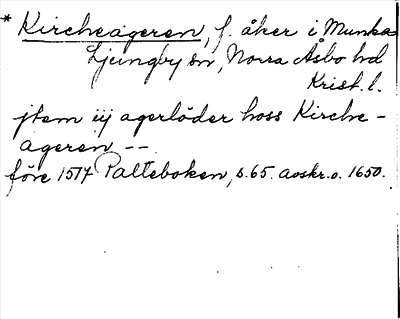 * Kircheageren, f. åker i Munka
Ljungby sn, Norra Åsbo hd
Krist. l.
jtem iij agerlöder hoss Kirche-
ageren --
före 1517 Palteboken, s. 65. avskr. o. 1650.